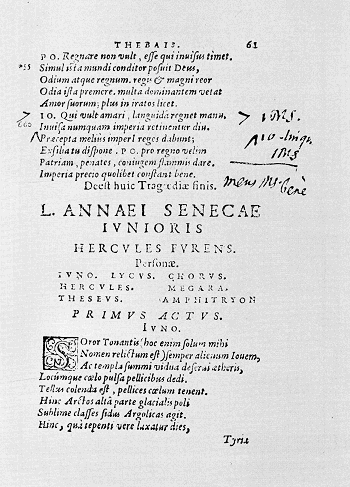 THEBAIS. 61
PO. Regnare non vult, esse qui invisus timet.
Simul ista mundi conditor posuit Deus,
Odium atque regnum. regis magni reor
Odia ista premere. multa dominantem vetat
Amor suorum; plus in iratos licet.
IO. Qui vult amari, languida regnet manu.
Invisa numquam imperia retinentur diu.
Præcepta melius imperI reges dabunt;
Exsilia tu dispone. PO. pro regno velim
Patriam, penates, coniugem flammis dare.
Imperia precio quolibet constant bene.
Deest huic Tragœdiæ finis.
L. ANNAEI SENECAE
IVNIORIS
HERCVLES FVRENS.
Personæ.
IVNO. LYCVS. CHORVS.
HERCVLES. MEGARA.
THESEVS. AMPHITRYON
PRIMVS ACTVS.
IVNO.
SOror Tonantis (hoc enim solum mihi
Nomen relictum est) semper alienum Iovem,
Ac templa summi vidua deserui ætheris,
Locumque cœlo pulsa pellicibus dedi.
Tellus colenda est, pellices cœlum tenent.
Hinc Arctos altâ parte glacialis poli
Sublime classes sidus Argolicas agit.
Hinc, quà tepenti vere laxatur dies,
Tyriæ
655
660
meus Ms. bene